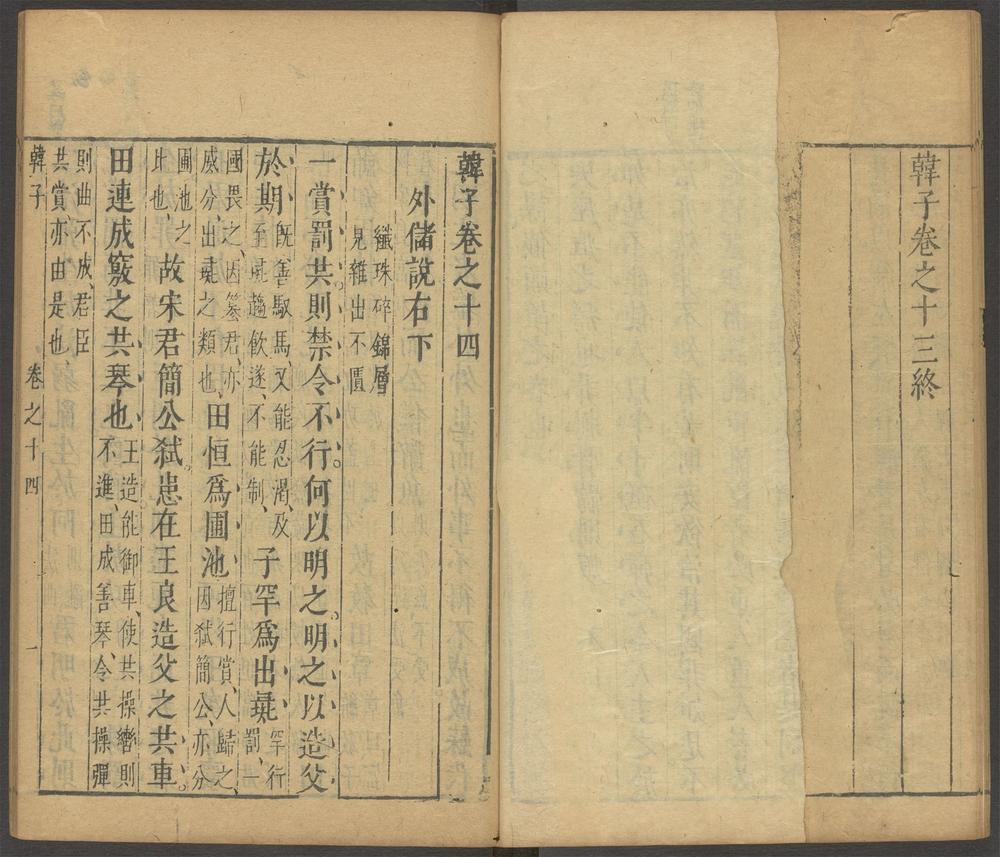 韓子卷之十三終
韓子卷之十四
外儲說右下
纖珠碎錦層
見雜出不匱
一賞罰共、則禁令不行。何以明之。明之以造父
於期、既善馭馬、又能忍渴、及至彘趨飲、遂不能制、子罕爲出彘、罕行罰、一
國畏之、因簒君、亦威分出彘之類也、田恒爲圃池、擅行賞、人歸之、因弒簡公、亦分
圃池之比也、故宋君簡公弒。患在王良造父之共車。
田連成竅之共琴也、王造能御車、使共操轡則不進、田成善琴、令共操彈
則曲不成、君臣共賞亦由是也、
韓子 卷之十四 一